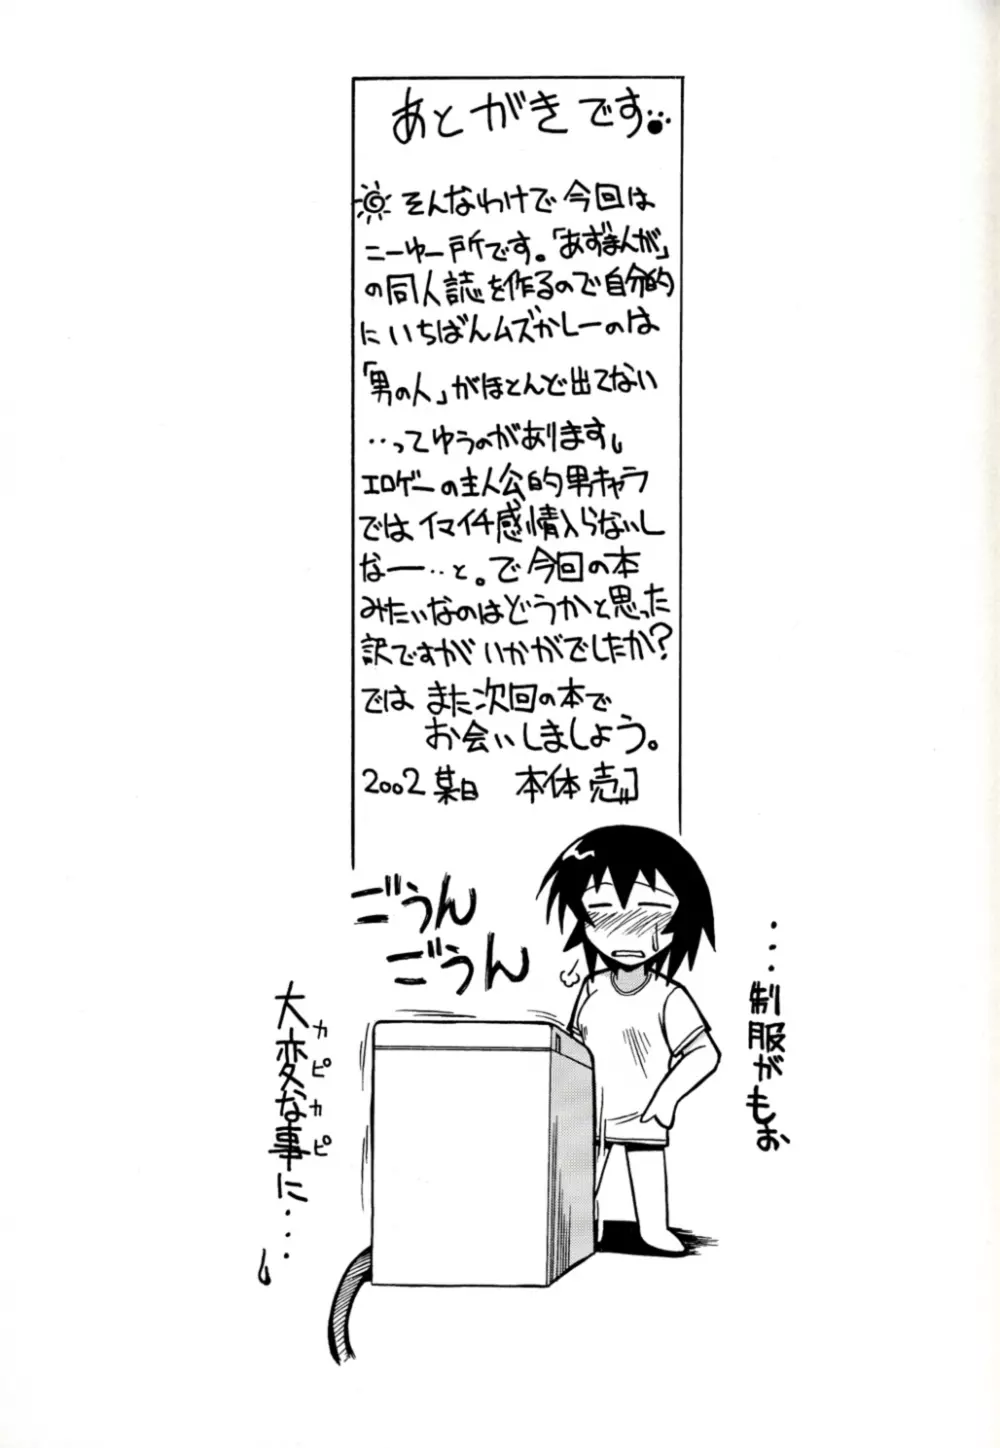 あとがきです
そんなわけで今回は
ニーゆー所です。「あずまんが」
の同人誌を作るので自分的
にいちばんムズかしーのは
「男の人」がほとんど出てない
‥ってゆうのがあります。
エロゲーの主人公的男キャラ
ではイマイチ感情入らないし
なー‥と。で今回の本
みたいなのはどうかと思った
訳ですがいかがでしたか?
では また次回の本で
お会いしましょう。
2002某日 本体売
ごうん
ごうん
・・・制服がもお
大変な事に・・・
カピ
カピ